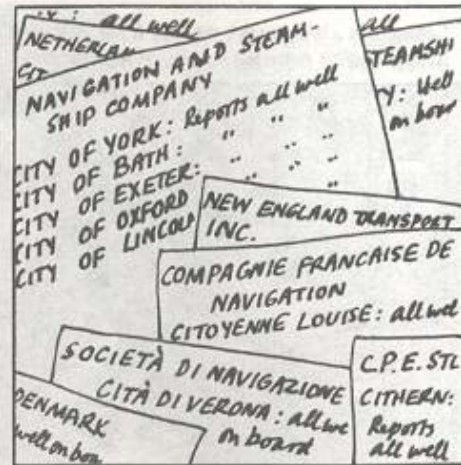 : all well
NETHERLAN
CIT
NAVIGATION AND STEAM-
SHIP COMPANY
CITY OF YORK: Reports all well
CITY OF BATH: " " "
CITY OF EXETER: " " "
CITY OF OXFORD " " "
CITY OF LINCOL "
all
STEAMSHI
Y: Well
on boar
NEW ENGLAND TRANSPORT
INC.
COMPAGNIE FRANCAISE DE
NAVIGATION
CITOYENNE LOUISE: all wel
SOCIETÀ DI NAVIGAZIONE
CITÀ DI VERONA: all we
on board
C.P.E. STE
CITHERN:
Reports
all well
DENMARK
well on boa